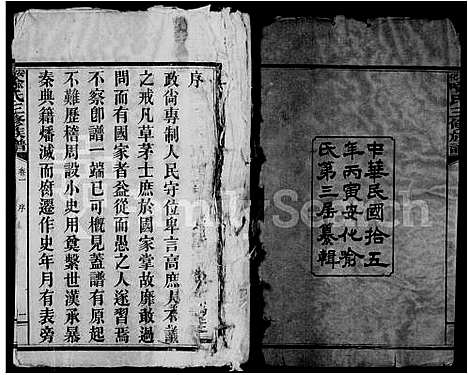 中華民國拾五
年丙寅安化喻
氏第三居纂輯
序
政尙專制人民守位卑言高庶人不議
之戒凡草茅士庶於國家掌故靡敢過
問而有國家者益從而愚之人遂習焉
不察卽譜一端已可概見蓋譜有原起
不難歷稽周設小史用奠繫世漢承暴
秦典籍燔滅而腐遷作史年月有表旁
喻氏三修族譜
卷一
序
FamilySearch